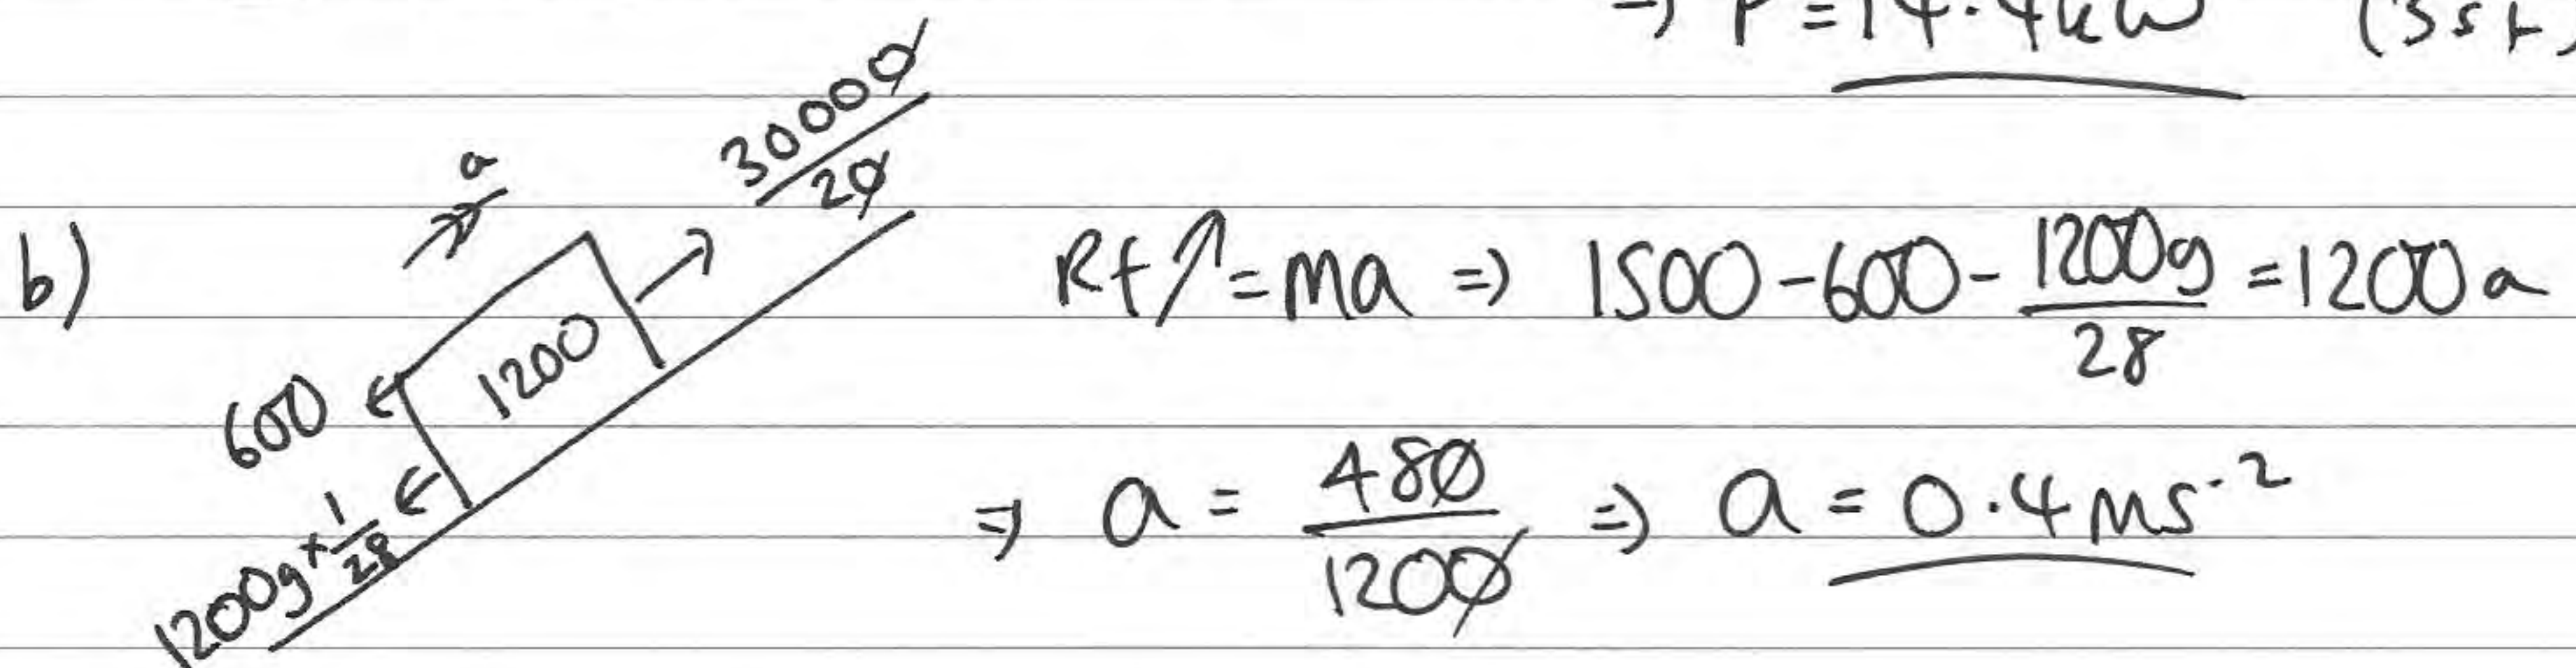 =) P = 14.4kW (3sf)
b)
a
30000
20
600
1200
1200g × 1/28
Rf↗ = ma => 1500 - 600 - 1200g/28 = 1200a
=> a = 480/1200 => a = 0.4 ms⁻²